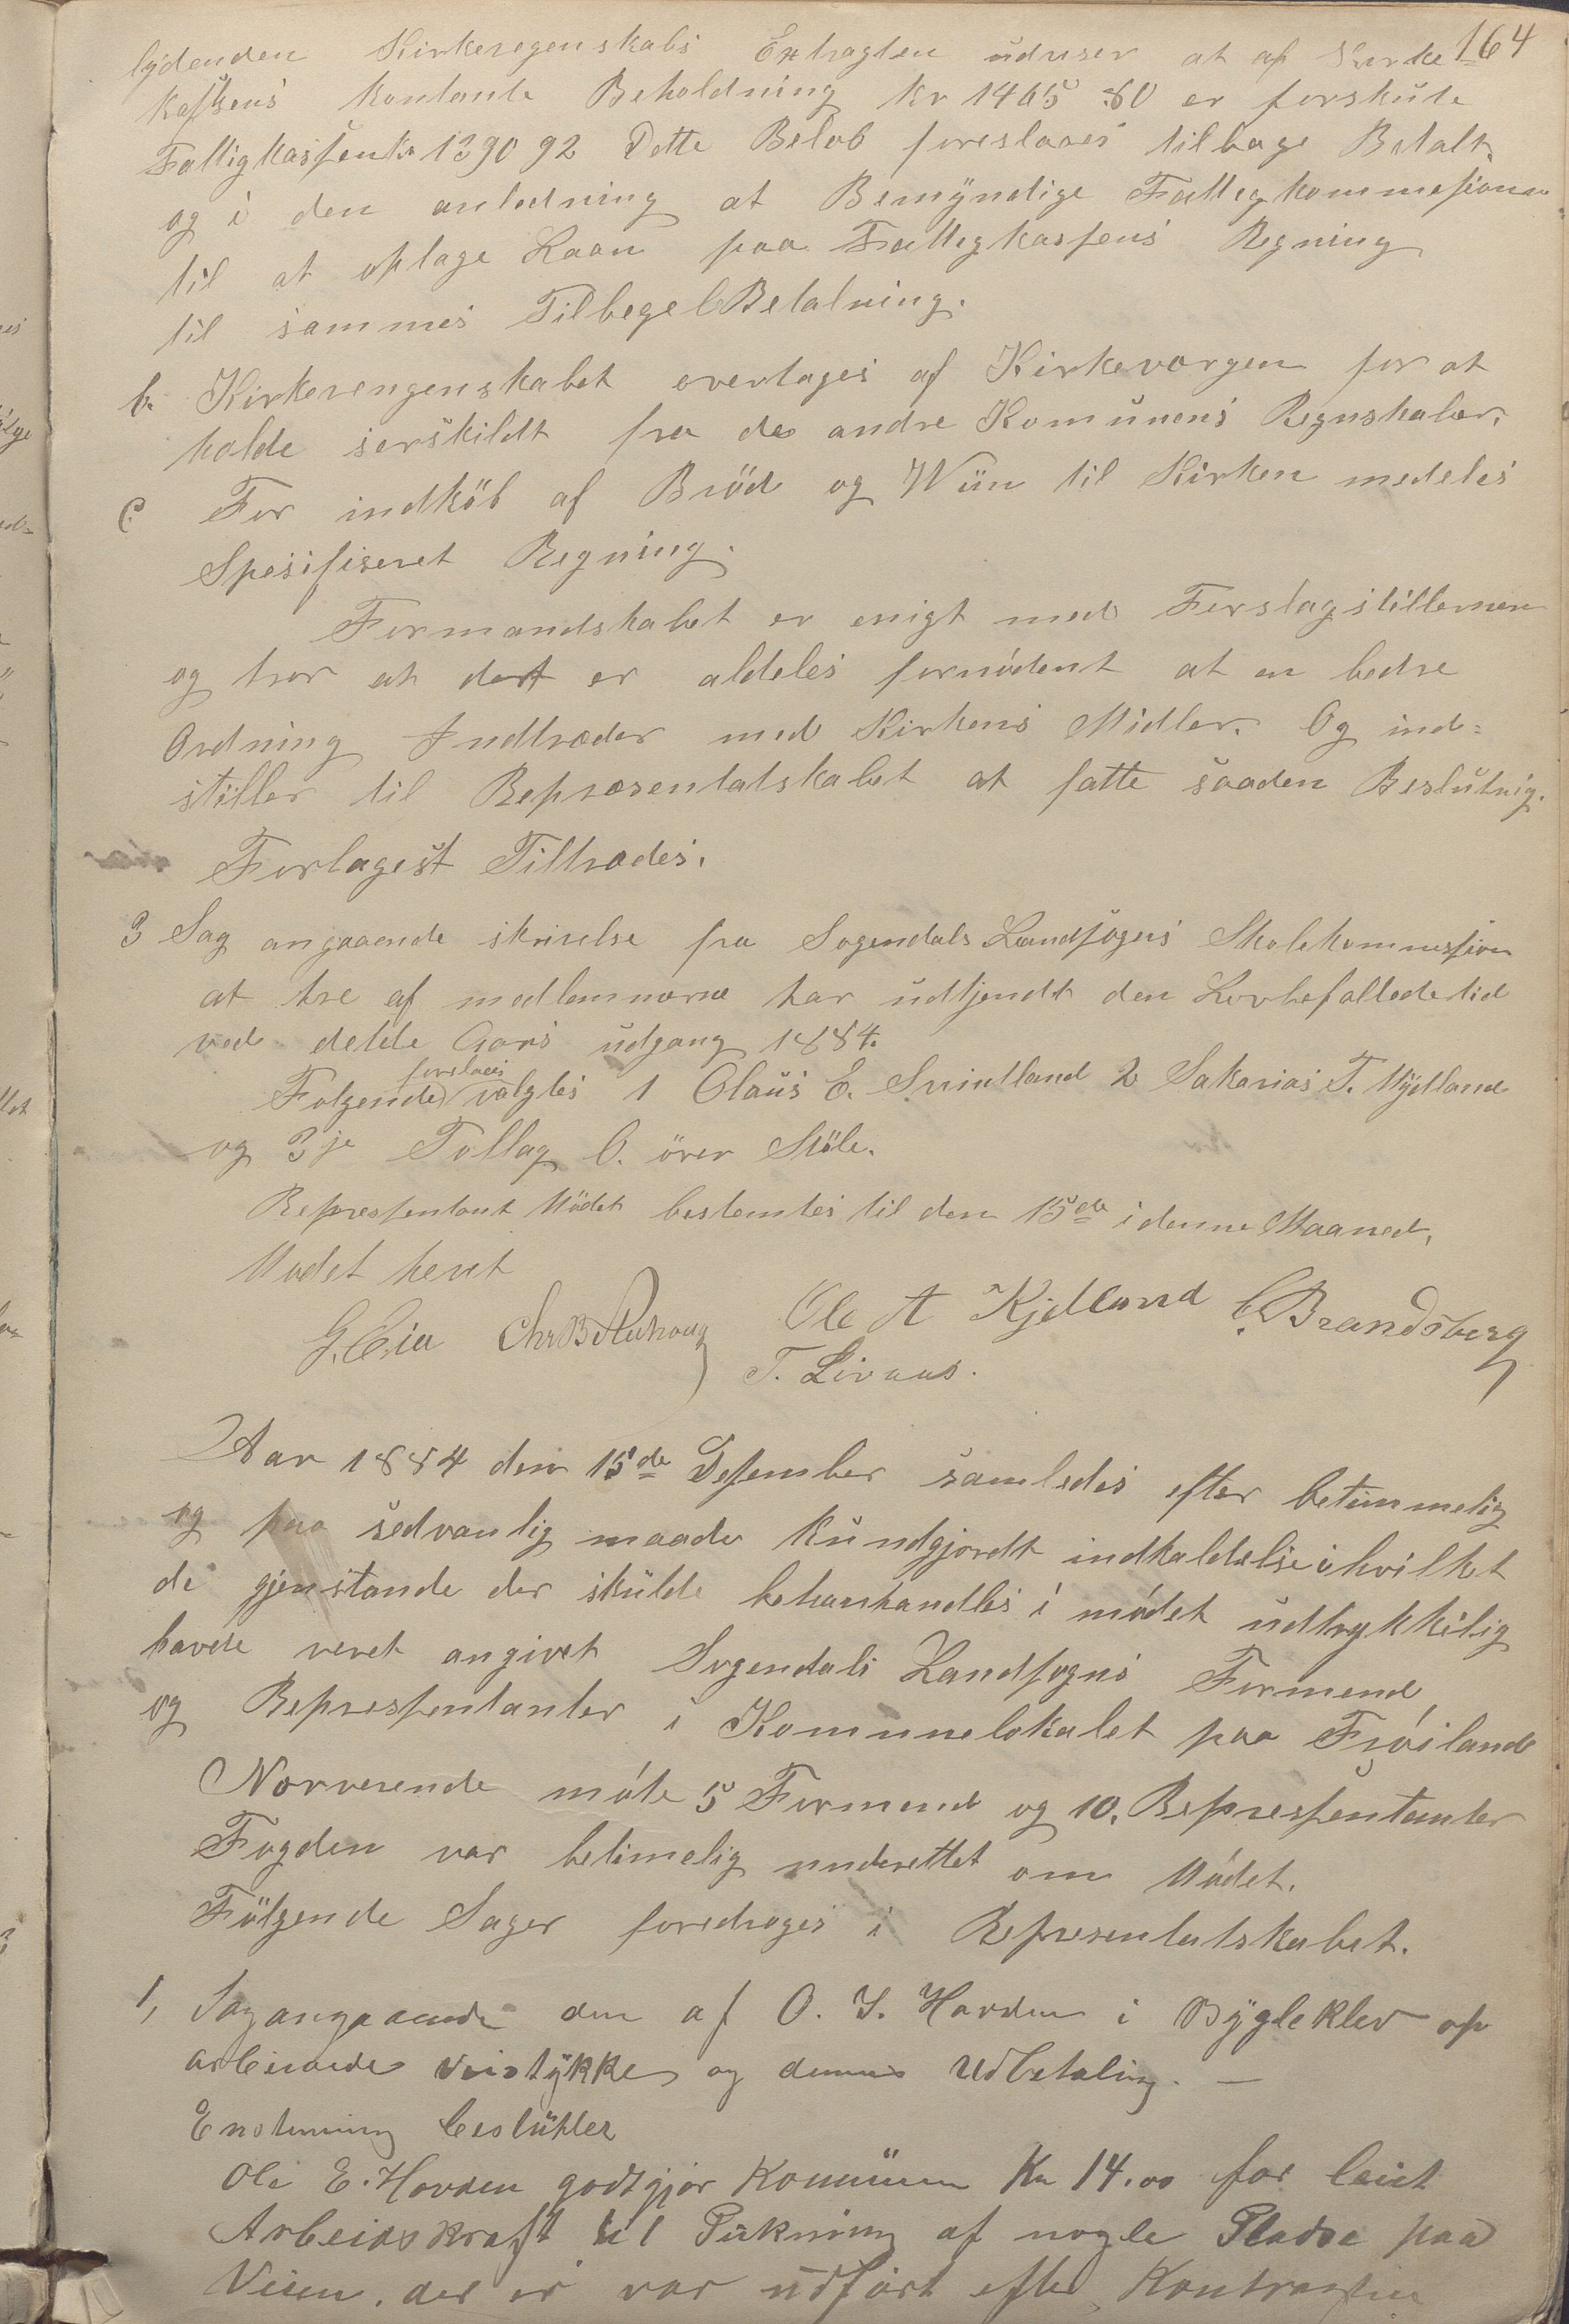 164
lydenden Kirkeregenskabs Extragten udviser at af Kirke
kassens kontante Beholdning Kr 1465 80 er forskute
Fattigkassen Kr 1390 92 Dette Beløb foreslaaes tilbage Betalt.
og i den anledning at Bemyndige Fattigkommesionen
til at optage Laan paa Fattegkassens Regning
til sammes Tilbegel Betalning.
b. Kirkerengenskabet overtages af Kirkeværgen for at
holde serskildt fra de andre Komunens Regnskaber.
c. For indköb af Bröd og Wiin til Kirken medeles
Spesifiseret Regning.
Formandskabet er enigt med Forslagstillernen
og tror at dert er aldeles fornódent at en bedre
Ordning Indtræder med Kirkens Midler. Og ind=
stiller til Repræsentatskabet at fatte saaden Beslutnig.
Forlagest Tiltrædes.
3 Sag angaaende skrivelse fra Sogendals Landsogns Skolekommission
at tre af medlemmerne har udtjendt den Lovbefallede tid
ved dette Aars udgang 1884.
forslaaes
Folgende valgtes 1 Olaüs E. Svindland 2 Sakarias T. Mydland
og 3je Tollag O. över Stöle.
Represpentant Mödet bestemtes til den 15de i denne Maaned,
Modet hevet
G. Eia Chr B Aarhoug Ole A Kjelland C. Brandsberg
T. Livaas.
Aar 1884 den 15de Desember samledes efter betimmelig
og paa sedvanlig maade Kundgjordt indkaldelse i hvilket
de gjenstande der skulde behanhandles i mödet udtrykkelig
havde veret angivet Sogendals Landsogns Formend
og Represpentanter i Kommunelokalet paa Fróiland
Nærverende móte 5 Formend og 10. Represpentanter
Fogden var betimelig underettet om Mödet.
Fölgende Sager foredroges i Representatskabet.
1, Sag angaaende den af O. S. Hovden i Bygleklev op
arbeirede Veistykke og dennes Udbetaling. —
Enstemmig besluttes
Ole E. Hovden godtgjør Kommünen Kr 14.00 for leiet
Arbeidskraft til Pukning af nogle Pladse paa
Veien, der ei var udført efter Kontrakten